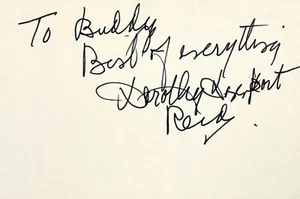 To Buddy
Best of everything
Dorothy Davenport
Reid.